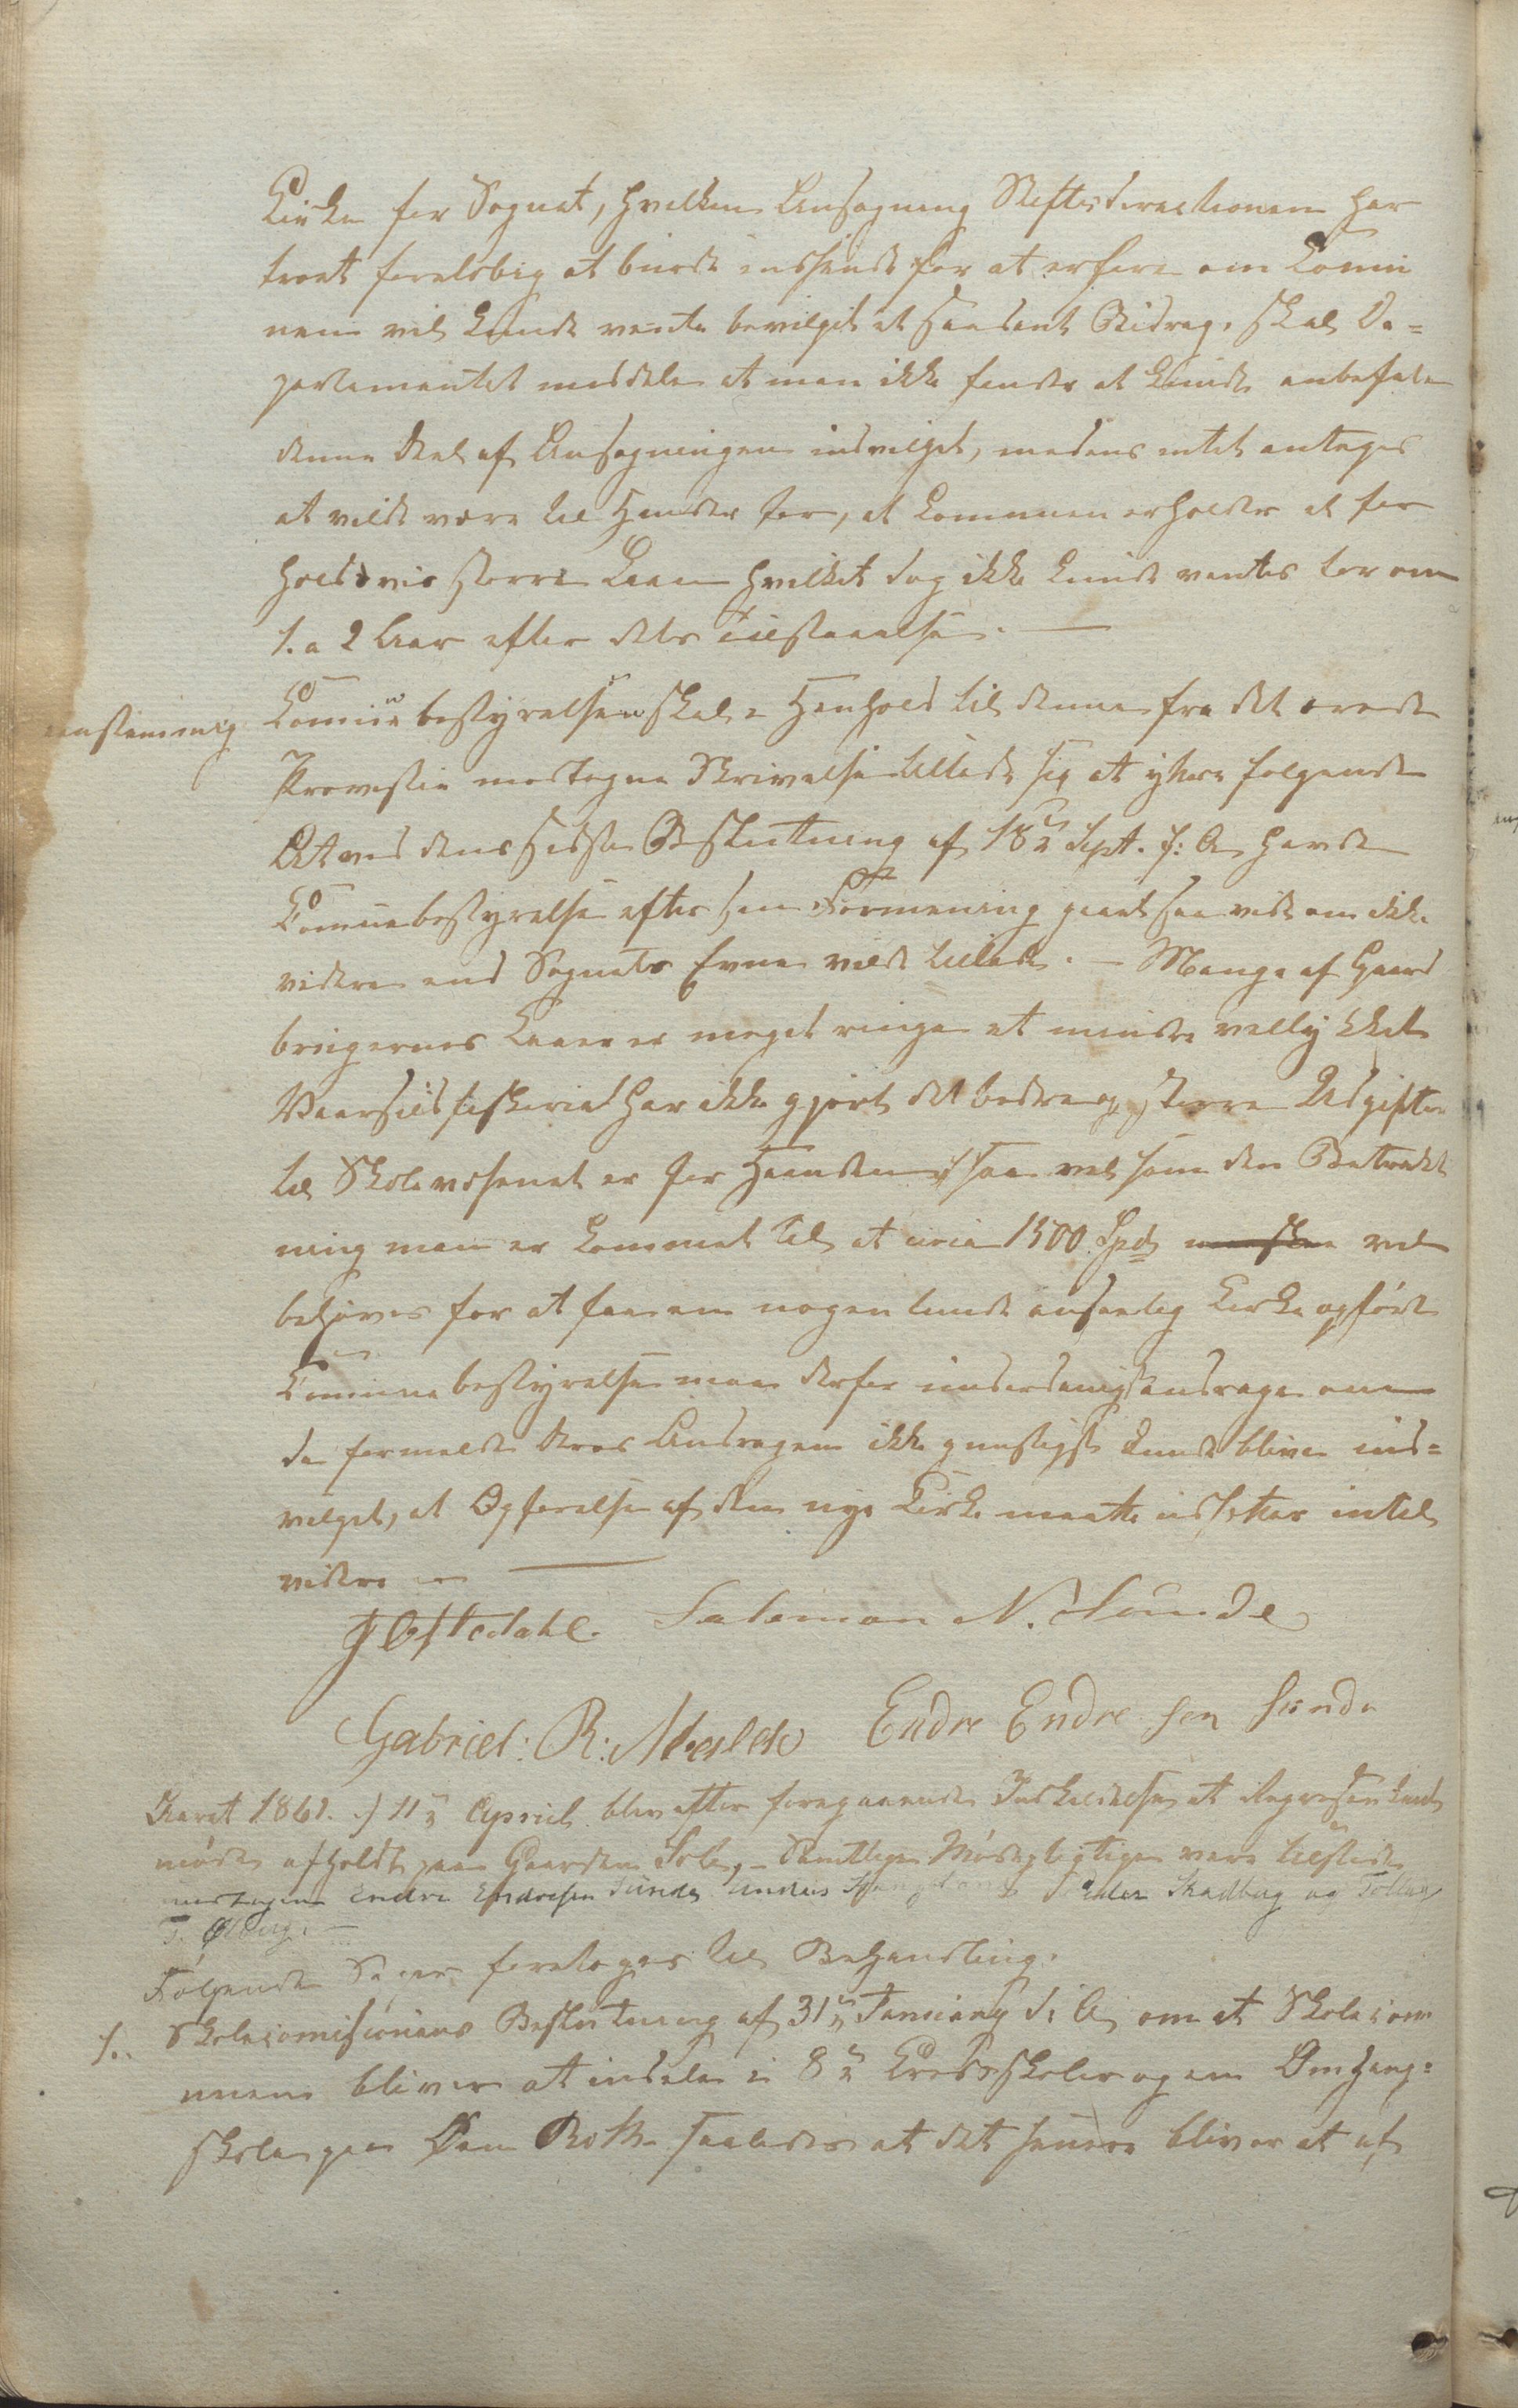 Kirke for Sognet, hvilken Ansøgning Stiftsdirectionen har
troet foreløbig at burde indsende for at erfare om Commu
nen vil kunde vente bevilget et saadant Bidrag, skal De=
partementet meddele at man ikke finder at kunde anbefale
denne Deel af Ansøgningen indvilget, medens intet antages
at vilde være til Hinder for, at Communen erholder et for
holdsvis større Laan hvilket dog ikke kunde ventes før om
1. a 2 Aar efter dets Tilstaaelse. —
eenstemmig
Communebestyrelsen skal i Henhold til denne fra det ærede
Provstie modtagne Skrivelse tillade sig at ytre følgende
At ved dens sidste Beslutning af 18de Sept. f: A. havde
Communebestyrelse efter sin Formening gaaet saa vidt om ikke
videre end Sognets Evne vilde tillade. — Mange af Gaard
brugernes Kaar er meget ringe et mindre vellykket
Vaarsildfiskerie har ikke gjort det bedre og større Udgifter
til Skolevæsenet er for Haanden, saa vel som den Betragt
ning man er kommet til at circa 1500 Spd vil
behøves for at faa en nogenlunde anseelig Kirke opført
Communebestyrelsen maa derfor underdanigst andrage om
da formeldte deres Andragende ikke gunstigst kunde blive ind=
vilget, at Opførelse af den nye Kirke maatte udsættes indtil
videre —
Salomon N. Sunde
Gabriel: R: Endre Endresen Sunde
Aaret 1861. d 11te April blev efter foregaaende Indkaldelse et Repræsentant
møde afholdt paa Gaarden Sole, — Samtlige Mødepligtige vare tilstede
undtagen Endre Endresen Sunde Peder Skadberg og Tollag
T. Ølberg. —
Følgende Sager foretoges til Behandling.
1. Skolecomissionens Beslutning af 31te Januarj d: A. om at Skolecom
munen bliver at inddele i 8te Kredsskoler og en Omgang=
skole paa Øen Rott saaledes at det senere bliver at af